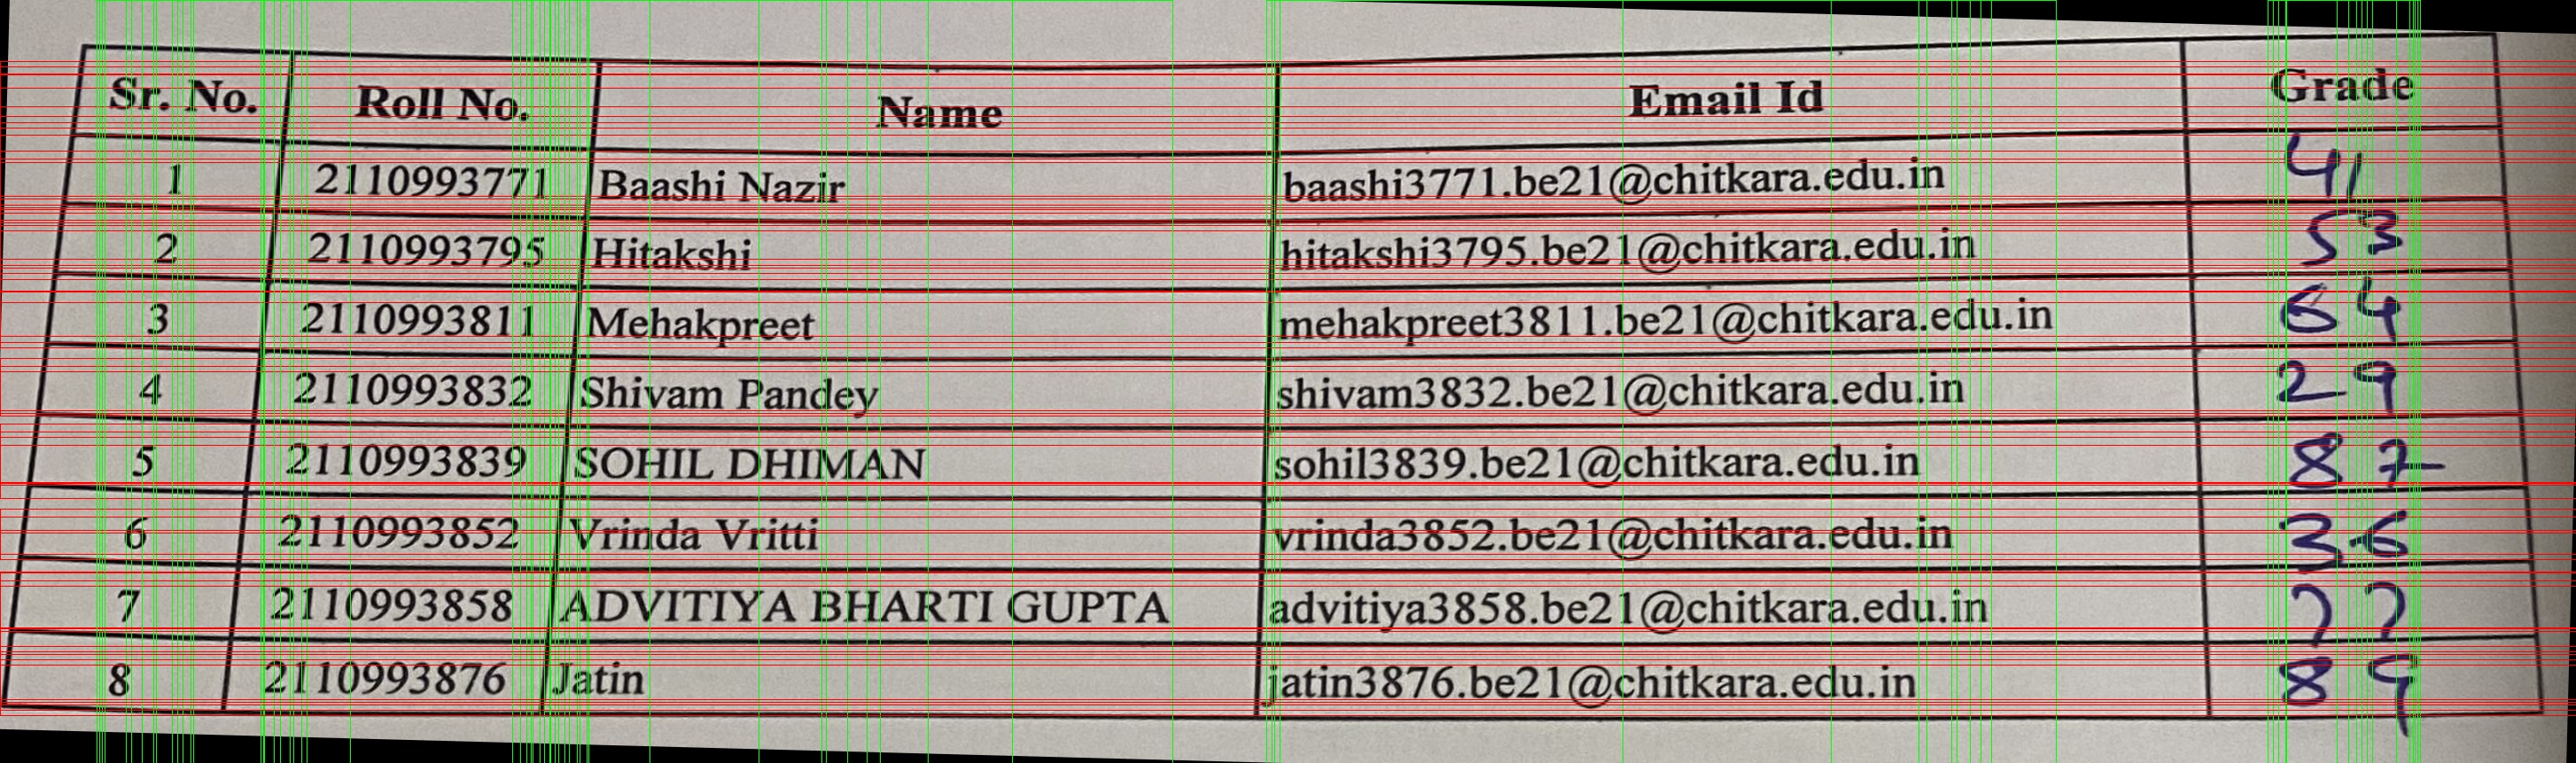 Sr. No. Roll No. Name Email Id Grade
1 2110993771 Baashi Nazir baashi3771.be21@chitkara.edu.in 41
2 2110993795 Hitakshi hitakshi3795.be21@chitkara.edu.in 53
3 2110993811 Mehakpreet mehakpreet3811.be21@chitkara.edu.in 64
4 2110993832 Shivam Pandey shivam3832.be21@chitkara.edu.in 29
5 2110993839 SOHIL DHIMAN sohil3839.be21@chitkara.edu.in 87
6 2110993852 Vrinda Vritti vrinda3852.be21@chitkara.edu.in 36
7 2110993858 ADVITIYA BHARTI GUPTA advitiya3858.be21@chitkara.edu.in 77
8 2110993876 Jatin jatin3876.be21@chitkara.edu.in 89